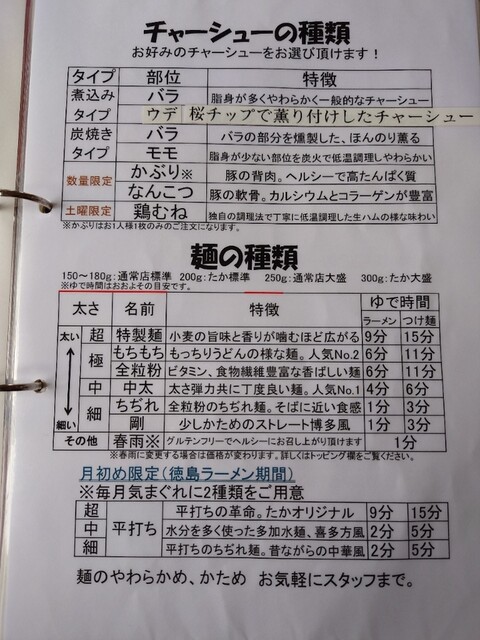 チャーシューの種類
お好みのチャーシューをお選び頂けます！
タイプ 部位 特徴
煮込み バラ 脂身が多くやわらかく一般的なチャーシュー
タイプ ウデ 桜チップで薫り付けしたチャーシュー
炭焼き バラ バラの部分を燻製した、ほんのり薫る
タイプ モモ 脂身が少ない部位を炭火で低温調理しやわらかい
数量限定 かぶり※ 豚の背肉。ヘルシーで高たんぱく質
なんこつ 豚の軟骨。カルシウムとコラーゲンが豊富
土曜限定 鶏むね 独自の調理法で丁寧に低温調理した生ハムの様な味わい
※かぶりはお1人様1枚のみのご注文になります。
麺の種類
150～180g:通常店標準 200g:たか標準 250g:通常店大盛 300g:たか大盛
※ゆで時間はおおよその目安です。
太さ 名前 特徴 ゆで時間
ラーメン つけ麺
太い 超 特製麺 小麦の旨味と香りが噛むほど広がる 9分 15分
極 もちもち もっちりうどんの様な麺。人気No.2 6分 11分
全粒粉 ビタミン、食物繊維豊富な香ばしい麺 6分 11分
中 中太 太さ弾力共に丁度良い麺。人気No.1 4分 6分
細 ちぢれ 全粒粉のちぢれ麺。そばに近い食感 1分 3分
細い 剛 少しかためのストレート博多風 1分 3分
その他 春雨※ グルテンフリーでヘルシーにお召し上がり頂けます 1分
※春雨に変更する場合は価格が変わります。詳しくはトッピング欄をご覧ください。
月初め限定（徳島ラーメン期間）
※毎月気まぐれに2種類をご用意
超 平打ち 平打ちの革命。たかオリジナル 9分 15分
中 水分を多く使った多加水麺、喜多方風 2分 5分
細 平打ちのちぢれ麺。昔ながらの中華風 2分 5分
麺のやわらかめ、かため お気軽にスタッフまで。